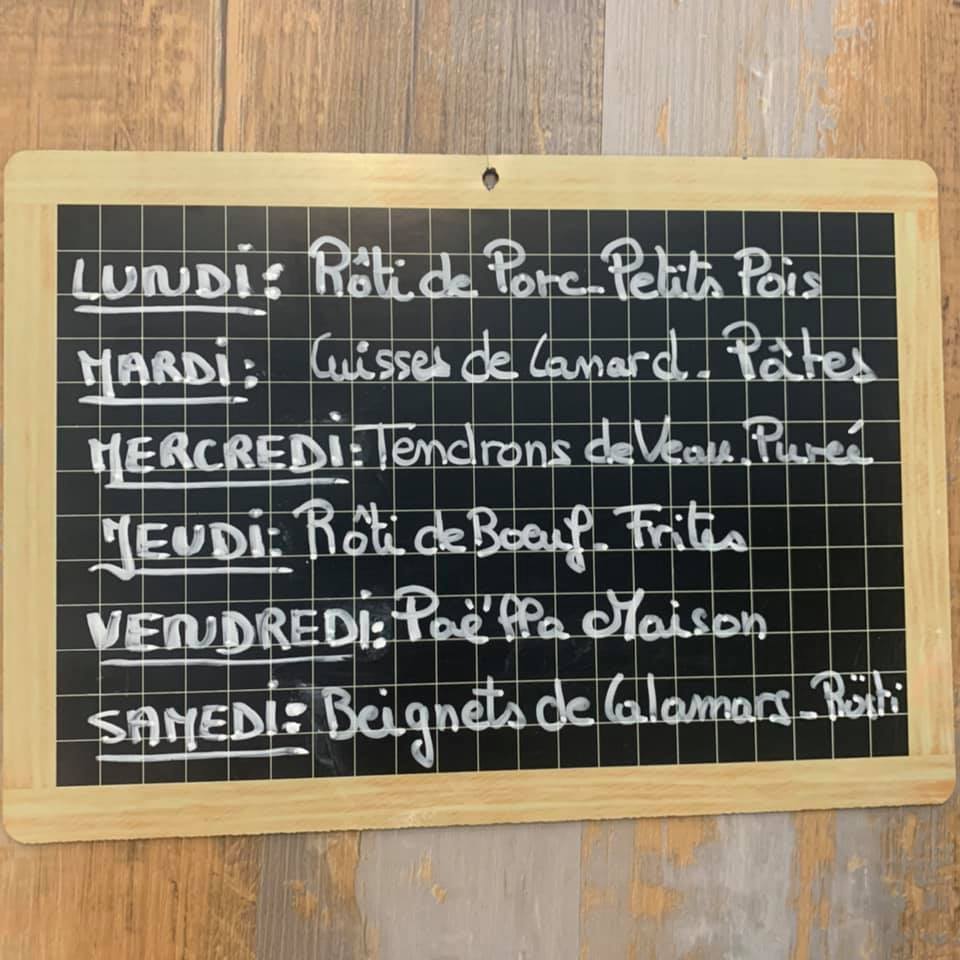 LUNDI: Rôti de Porc - Petits Pois
MARDI: Cuisses de Canard - Pâtes
MERCREDI: Tendrons de Veau - Pureé
JEUDI: Rôti de Boeuf - Frites
VENDREDI: Paëlla Maison
SAMEDI: Beignets de Calamars - Rösti